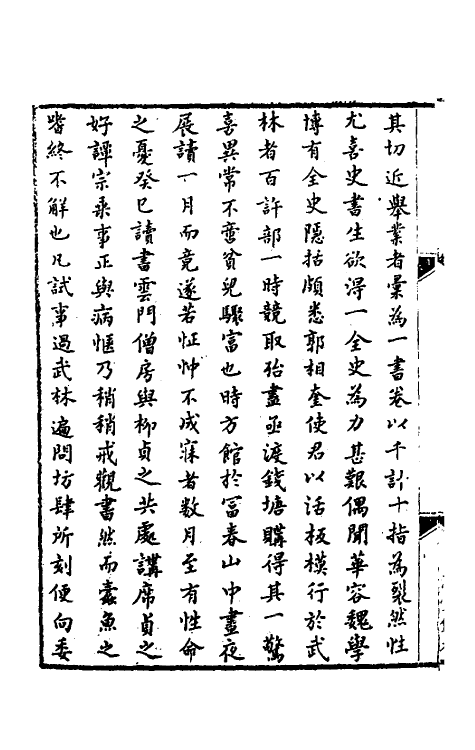 其切近舉業者彙為一書卷以千計十指為裂然性
尤喜史書生欲得一全史為力甚艱偶聞華容魏學
博有全史隱括頗悉郭相奎使君以活板模行於武
林者百許部一時競取殆盡亟渡錢塘購得其一驚
喜異常不啻貧兒驟富也時方館於富春山中晝夜
展讀一月而竟遂若怔忡不成寐者数月至有性命
之憂癸巳讀書雲門僧房與柳貞之共處講席貞之
好譚宗乗事正與病愜乃稍稍戒觀書然而蠹魚之
嗜終不解也凡試事過武林遍問坊肆所刻便向委